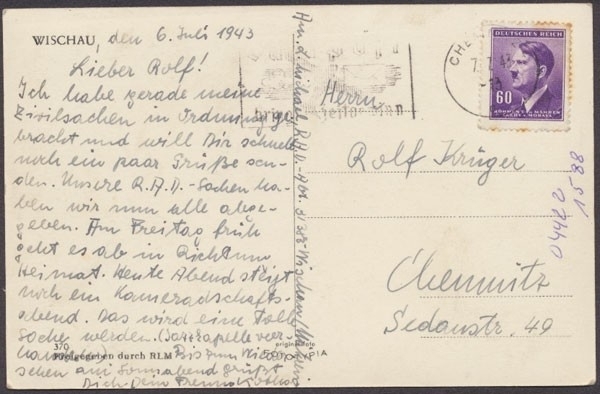 WISCHAU, den 6. Juli 1943
Lieber Rolf!
Ich habe gerade meine
Zivilsachen in Ordnung ge-
bracht und will Dir schnell
noch ein paar Grüße sen-
den. Unsere R.A.D.-Sachen ha-
ben wir nun alle abge-
geben. Am Freitag früh
geht es ab in Richtung
Heimat. Heute Abend steigt
noch ein Kameradschafts-
abend. Das wird eine tolle
Sache werden.
370
Freigegeben durch RLM
Bis zum Wieder-
sehen am Sonnabend grüßt
Dich Dein Freund
R.A.D.-Abt.
Wischau
DEUTSCHES REICH
60
BÖHMEN U. MÄHREN
ČECHY A MORAVA
Herrn
Rolf Krüger
Chemnitz
Sedanstr. 49
1588